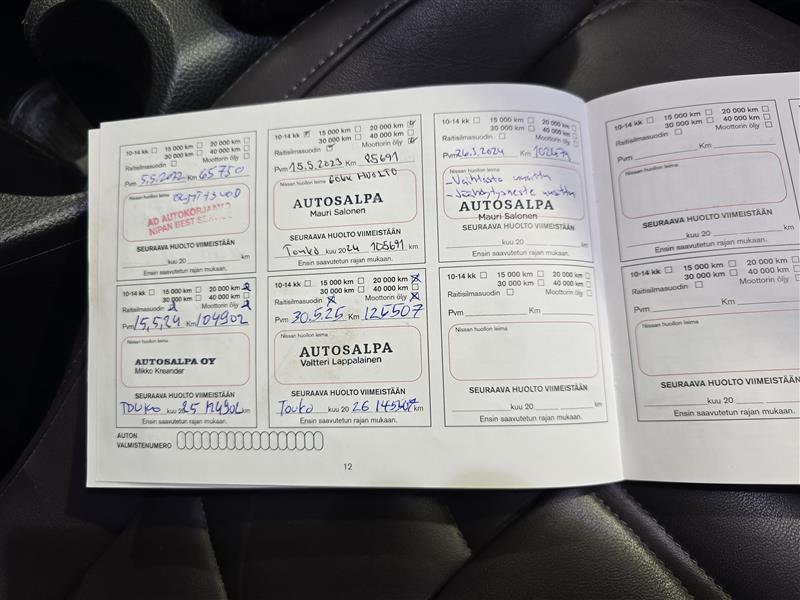 10-14 kk 15 000 km 20 000 km
30 000 km 40 000 km
Raitisilmasuodin Moottorin öljy
Pvm 5.5.2022 Km 65750
Nissan huollon leima
AD AUTOKORJAAMO
NIPAN BEST
SEURAAVA HUOLTO VIIMEISTÄÄN
kuu 20 km
Ensin saavutetun rajan mukaan.
10-14 kk 15 000 km 20 000 km
30 000 km 40 000 km
Raitisilmasuodin Moottorin öljy
Pvm 15.5.2023 Km 85691
Nissan huollon leima HUOLTO
AUTOSALPA
Mauri Salonen
SEURAAVA HUOLTO VIIMEISTÄÄN
Touko kuu 2024 105691 km
Ensin saavutetun rajan mukaan.
10-14 kk 15 000 km 20 000 km
30 000 km 40 000 km
Raitisilmasuodin Moottorin öljy
Pvm 26.3.2024 Km
Nissan huollon leima
- Vaihteisto
- Jäähdytysneste
AUTOSALPA
Mauri Salonen
SEURAAVA HUOLTO VIIMEISTÄÄN
kuu 20 km
Ensin saavutetun rajan mukaan.
10-14 kk 15 000 km 20 000 km
30 000 km 40 000 km
Raitisilmasuodin Moottorin öljy
Pvm 15.5.24 Km 104902
Nissan huollon leima
AUTOSALPA OY
Mikko Kreander
SEURAAVA HUOLTO VIIMEISTÄÄN
TOUKO kuu 2025 124902 km
Ensin saavutetun rajan mukaan.
10-14 kk 15 000 km 20 000 km
30 000 km 40 000 km
Raitisilmasuodin Moottorin öljy
Pvm 30.5.25 Km 126507
Nissan huollon leima
AUTOSALPA
Valtteri Lappalainen
SEURAAVA HUOLTO VIIMEISTÄÄN
Touko kuu 20 26 146507 km
Ensin saavutetun rajan mukaan.
10-14 kk 15 000 km 20 000 km
30 000 km 40 000 km
Raitisilmasuodin Moottorin öljy
Pvm Km
Nissan huollon leima
SEURAAVA HUOLTO VIIMEISTÄÄN
kuu 20 km
Ensin saavutetun rajan mukaan.
AUTON
VALMISTENUMERO
12
10-14 kk 15 000 km 20 000 km
30 000 km 40 000 km
Raitisilmasuodin Moottorin öljy
Pvm Km
Nissan huollon leima
SEURAAVA HUOLTO VIIMEISTÄÄN
kuu 20 km
Ensin saavutetun rajan mukaan.
10-14 kk 15 000 km 20 000
30 000 km 40 000
Raitisilmasuodin Moottorin öljy
Pvm Km
Nissan huollon leima
SEURAAVA HUOLTO VIIMEISTÄÄN
kuu 20
Ensin saavutetun rajan mukaan.